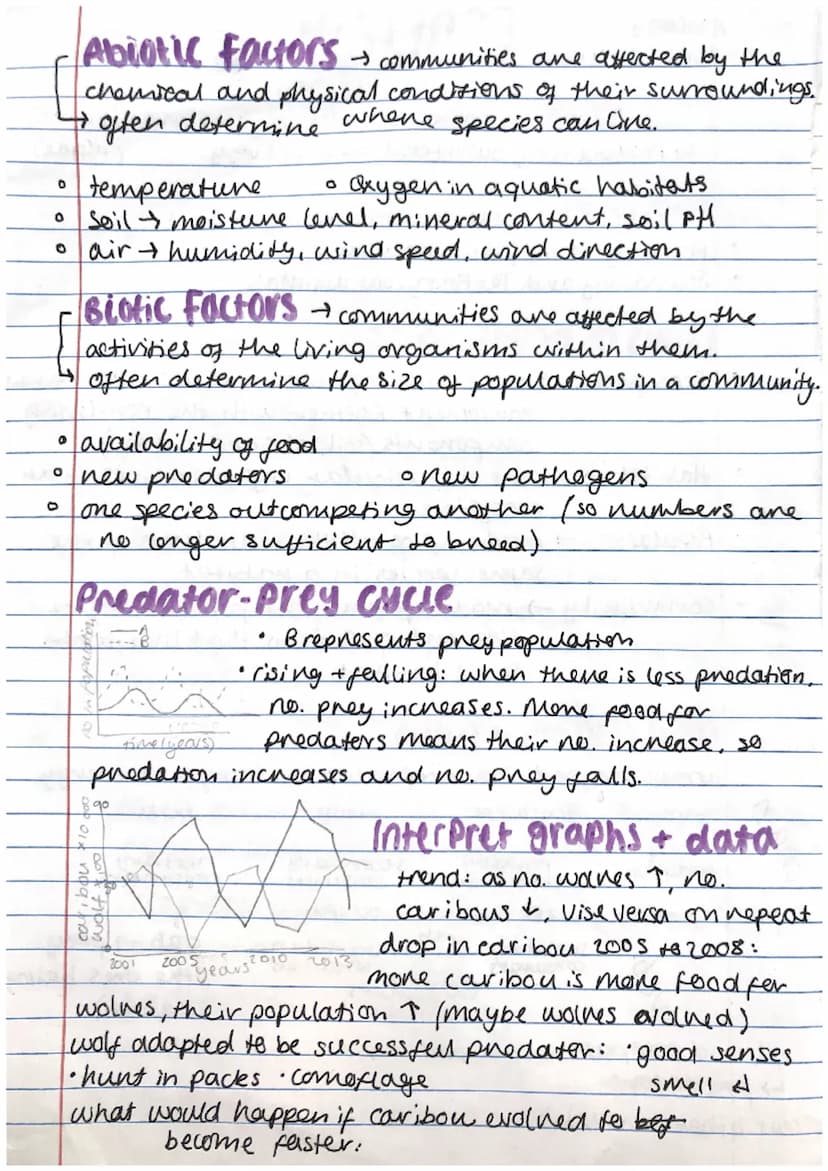 Abiotic Factors → communities are affected by the
chemical and physical conditions of their surroundings.
↳ often determine where species can live.
• temperature • Oxygen in aquatic habitats
• Soil → moisture level, mineral content, soil pH
• air → humidity, wind speed, wind direction
Biotic Factors → communities are affected by the
activities of the living organisms within them.
↳ often determine the size of populations in a community.
• availability of food
• new predators • new pathogens
• one species outcompeting another (so numbers are
no longer sufficient to breed)
Predator-Prey cycle
A
B
no in population
time (years)
• B represents prey population
• rising + falling: when there is less predation,
no. prey increases. More food for
predators means their no. increase, so
predation increases and no. prey falls.
Interpret graphs + data
caribou x10 000
wolf x
90
2001 2005 2010 2013
years
trend: as no. wolves ↑, no.
caribous ↓, vise versa on repeat
drop in caribou 2005 to 2008:
more caribou is more food for
wolves, their population ↑ (maybe wolves evolved)
wolf adapted to be successful predator: • good senses
• hunt in packs • comoflage smell ↲
what would happen if caribou evolved to
become faster: